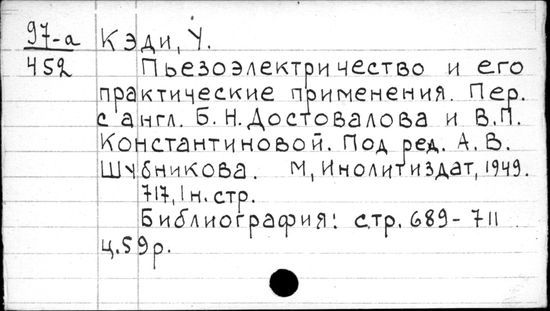 97-а Кэди, У.
452 Пьезоэлектричество и его
практические применения. Пер.
с англ. Б. Н. Достовалова и В.П.
Константиновой. Под ред. А. В.
Шубникова. М, Инолитиздат, 1949.
717, 1 н. стр.
Библиография: стр. 689-711
ц. 59 р.